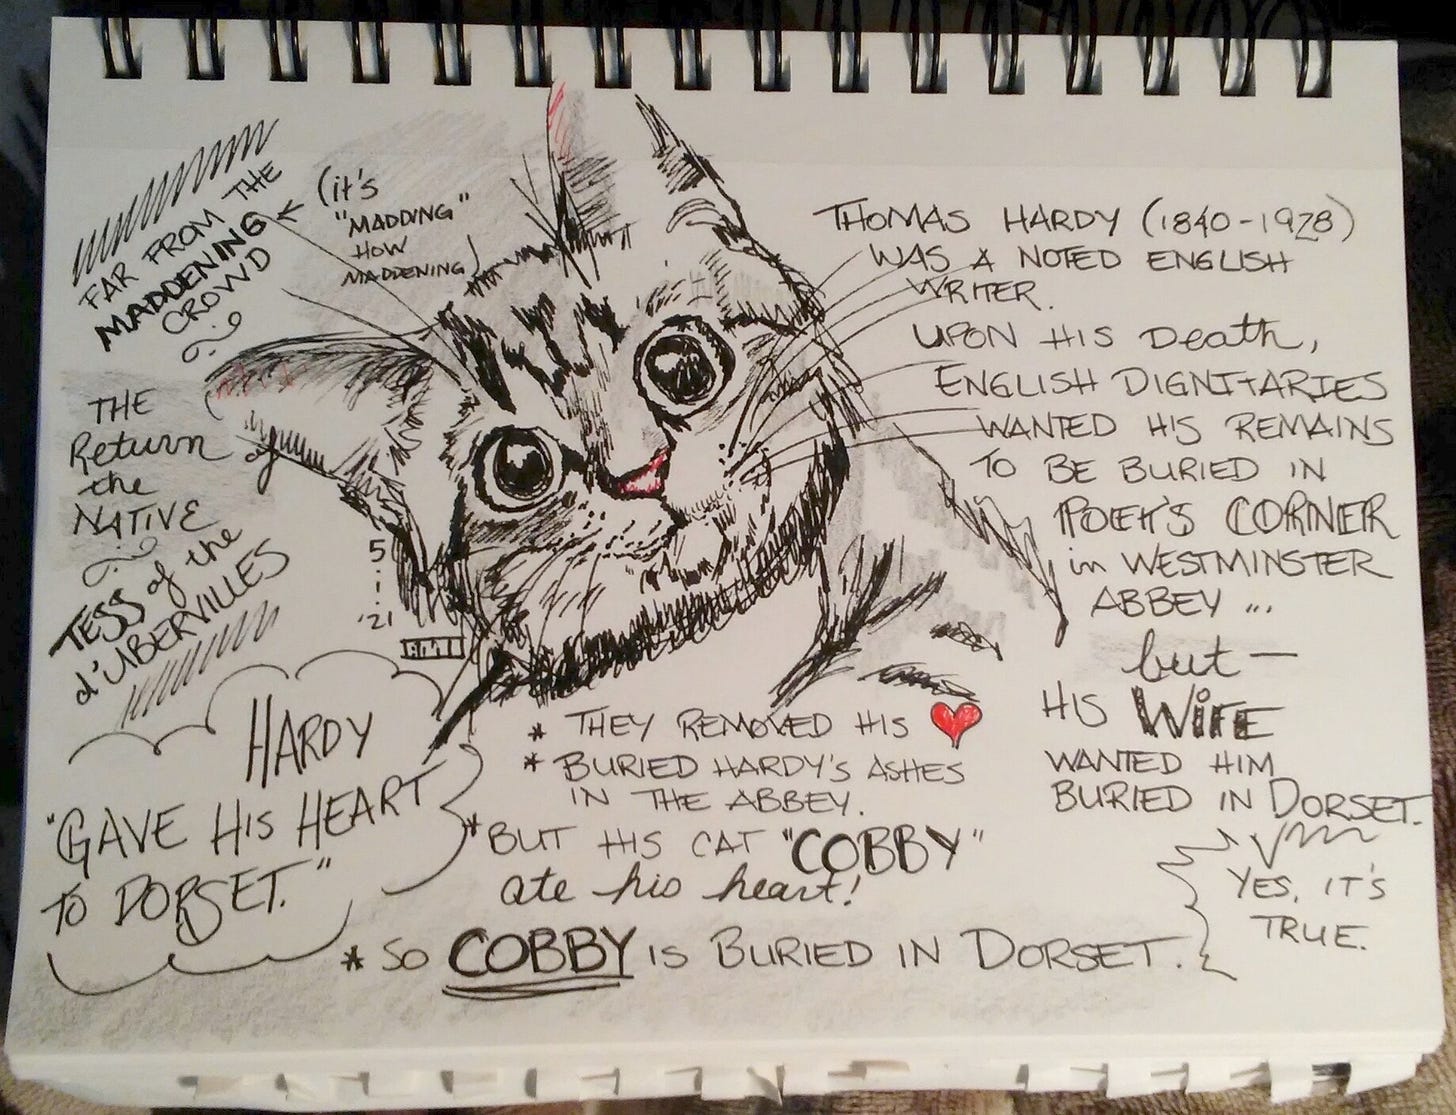 FAR FROM THE
MADDENING
CROWD
(it's
"MADDING"
HOW
MADDENING)
THE
Return
of
the
NATIVE
TESS of the
d'UBERVILLES
5
'21
HARDY
"GAVE HIS HEART
TO DORSET."
THOMAS HARDY (1840-1928)
WAS A NOTED ENGLISH
WRITER.
UPON HIS Death,
ENGLISH DIGNITARIES
WANTED HIS REMAINS
TO BE BURIED IN
POET'S CORNER
in WESTMINSTER
ABBEY ...
but —
HIS WIFE
WANTED HIM
BURIED IN DORSET.
YES, IT'S
TRUE.
* THEY REMOVED HIS ♥
* BURIED HARDY'S ASHES
IN THE ABBEY.
* BUT HIS CAT "COBBY"
ate his heart!
* SO COBBY IS BURIED IN DORSET.